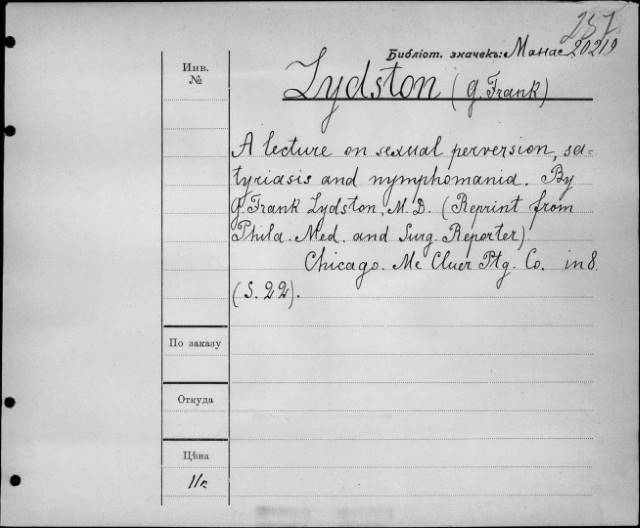 257
Библіот. значекъ: Манас 20219
Инв.
№
Lydston (G. Frank)
A lecture on sexual perversion, sa-
tyriasis and nymphomania. By
G. Frank Lydston, M.D. (Reprint from
Phila. Med. and Surg. Reporter).
Chicago. Mc Cluer Ptg. Co. in 8.
(S. 22).
По заказу
Откуда
Цѣна